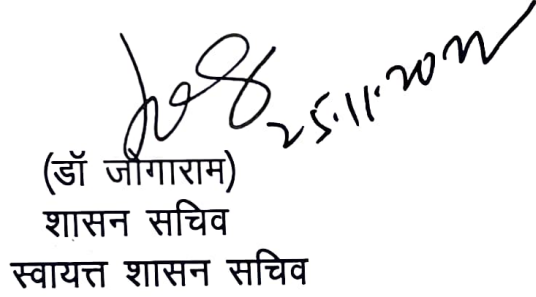 25.11.2022
(डॉ जोगाराम)
शासन सचिव
स्वायत्त शासन सचिव